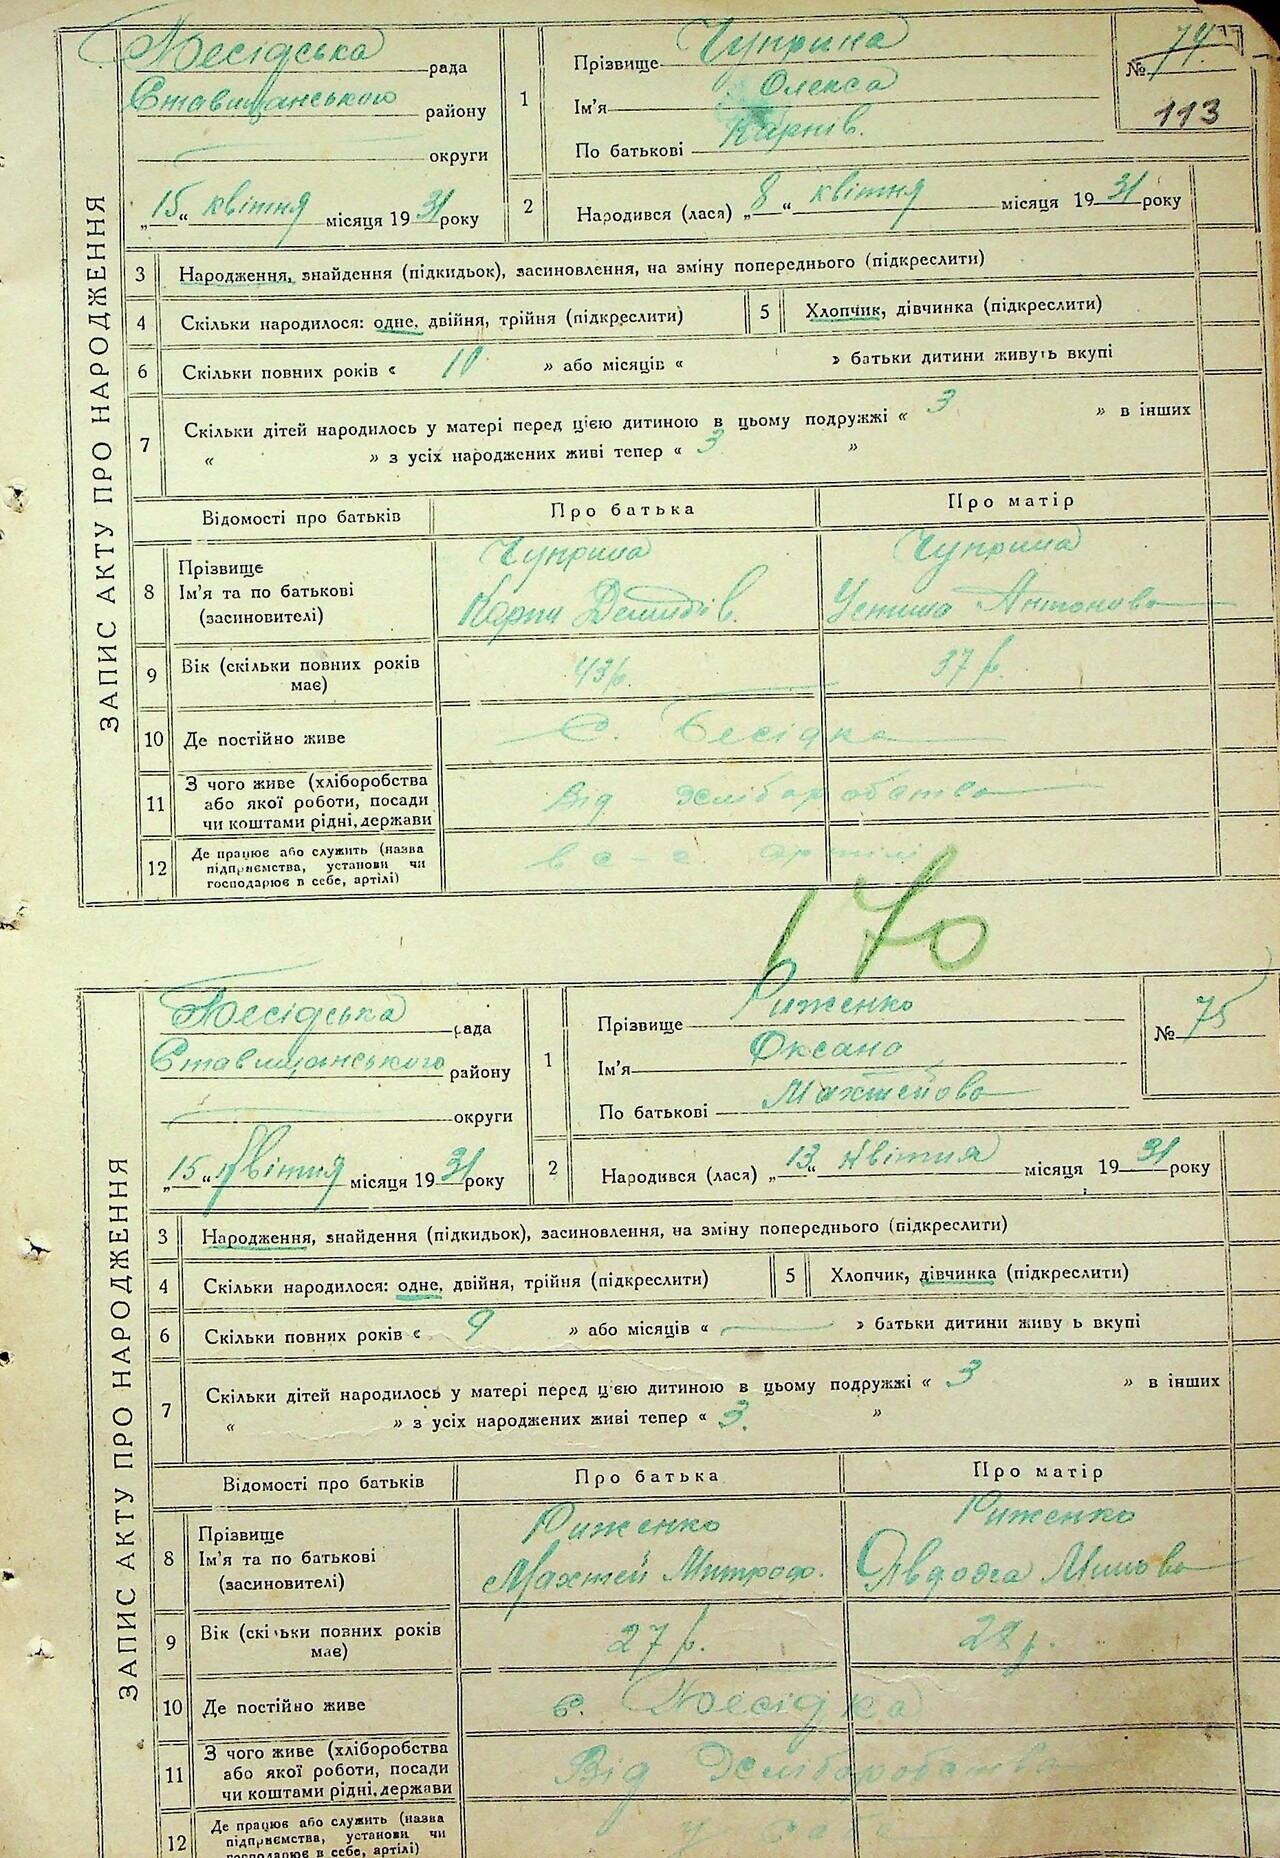 ЗАПИС АКТУ ПРО НАРОДЖЕННЯ
Бесідська рада
Ставищанського району
округи
„15“ квітня місяця 1931 року
1 Прізвище Чуприна
Ім'я Олекса
По батькові Карпів.
№ 74
113
2 Народився (лася) „8“ квітня місяця 1931 року
3 Народження, знайдення (підкидьок), засиновлення, на зміну попереднього (підкреслити)
4 Скільки народилося: одне, двійня, трійня (підкреслити) 5 Хлопчик, дівчинка (підкреслити)
6 Скільки повних років « 10 » або місяців « » батьки дитини живуть вкупі
7 Скільки дітей народилось у матері перед цією дитиною в цьому подружжі « 3 » в інших
« » з усіх народжених живі тепер « 3 »
Відомості про батьків Про батька Про матір
8 Прізвище Чуприна Чуприна
Ім'я та по батькові Карпи Демидів. Устина Антонова
(засиновителі)
9 Вік (скільки повних років має) 43 р. 37 р.
10 Де постійно живе С. Бесідка
11 З чого живе (хліборобства
або якої роботи, посади Від хліборобства
чи коштами рідні, держави
12 Де працює або служить (назва
підприємства, установи чи в с-г. артілі
господарює в себе, артілі)
170
ЗАПИС АКТУ ПРО НАРОДЖЕННЯ
Бесідська рада
Ставищанського району
округи
„15“ квітня місяця 1931 року
1 Прізвище Риженко
Ім'я Оксана
По батькові Махтейова
№ 75
2 Народився (лася) „13“ квітня місяця 1931 року
3 Народження, знайдення (підкидьок), засиновлення, на зміну попереднього (підкреслити)
4 Скільки народилося: одне, двійня, трійня (підкреслити) 5 Хлопчик, дівчинка (підкреслити)
6 Скільки повних років « 9 » або місяців « — » батьки дитини живу ь вкупі
7 Скільки дітей народилось у матері перед цією дитиною в цьому подружжі « 3 » в інших
« » з усіх народжених живі тепер « 3. »
Відомості про батьків Про батька Про матір
8 Прізвище Риженко Риженко
Ім'я та по батькові Махтей Митроф. Явдоха Минова
(засиновителі)
9 Вік (скільки повних років має) 27 р. 28 р.
10 Де постійно живе с. Бесідка
11 З чого живе (хліборобства
або якої роботи, посади Від хліборобства
чи коштами рідні, держави
12 Де працює або служить (назва
підприємства, установи чи у себе
господарює в себе, артілі)